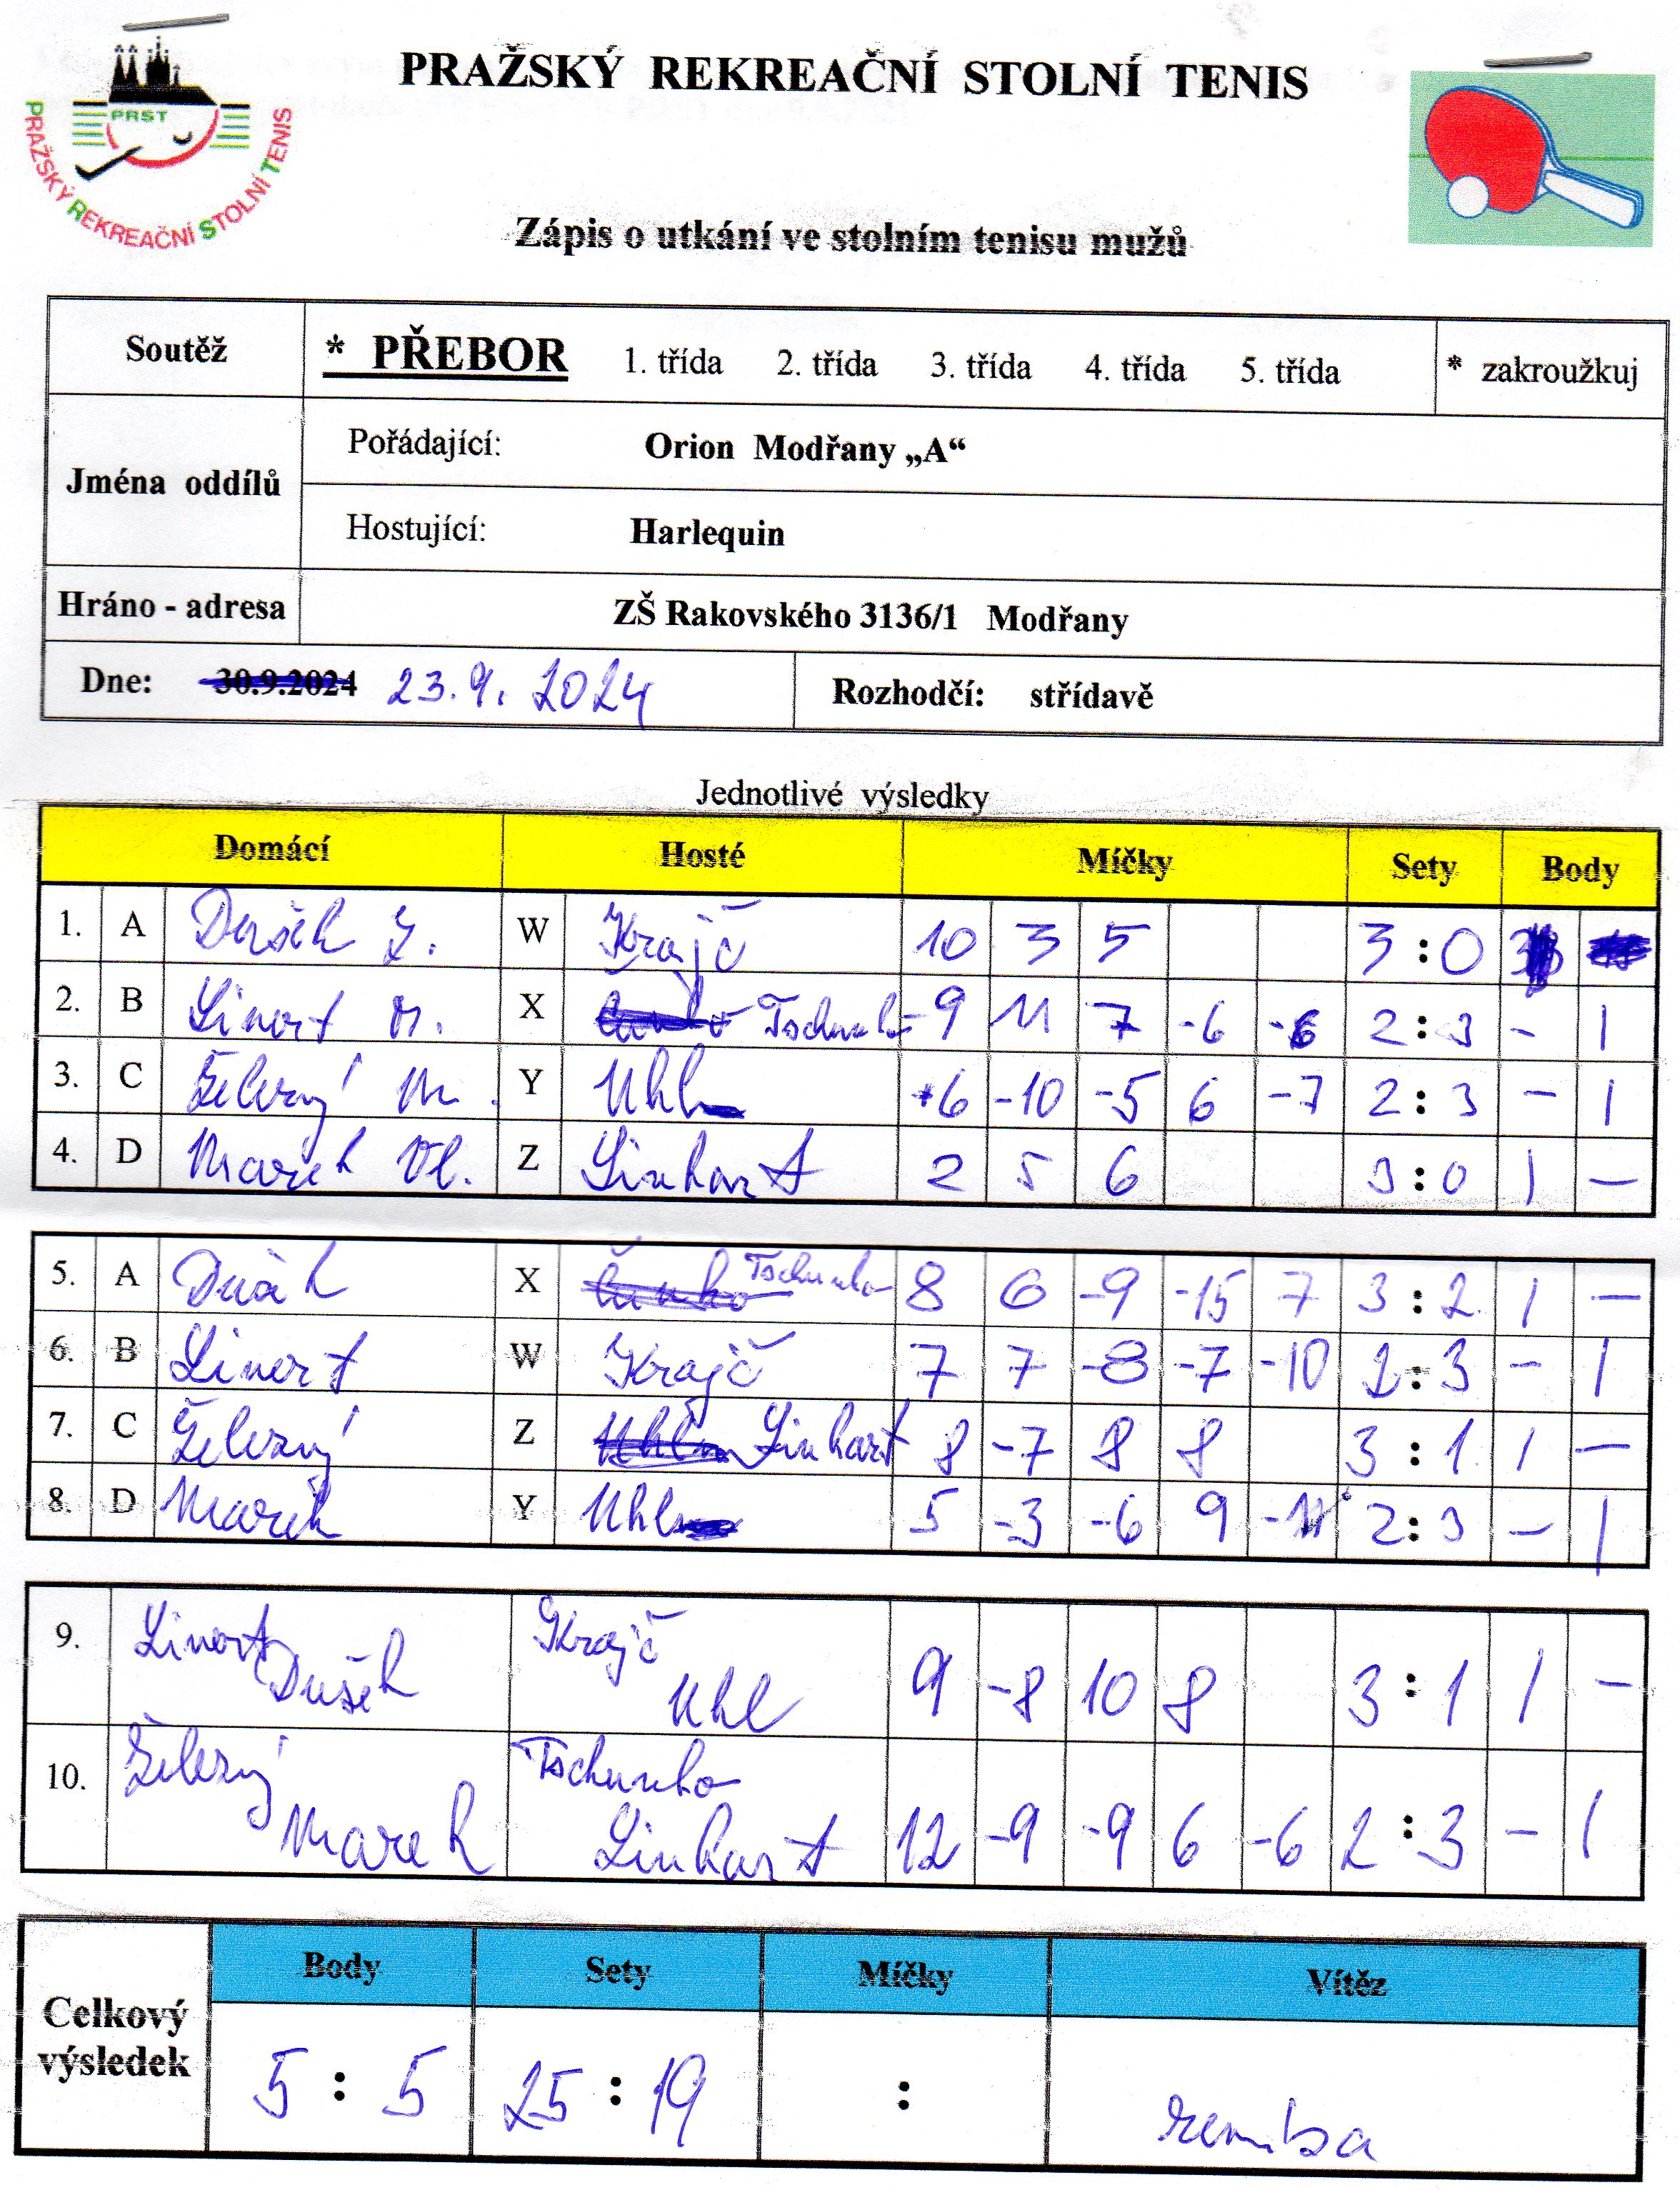 PRAŽSKÝ REKREAČNÍ STOLNÍ TENIS
PRST
PRAŽSKÝ REKREAČNÍ STOLNÍ TENIS
Zápis o utkání ve stolním tenisu mužů
Soutěž * PŘEBOR 1. třída 2. třída 3. třída 4. třída 5. třída * zakroužkuj
Jména oddílů
Pořádající: Orion Modřany „A“
Hostující: Harlequin
Hráno - adresa ZŠ Rakovského 3136/1 Modřany
Dne: 30.9.2024 23.9.2024 Rozhodčí: střídavě
Jednotlivé výsledky
Domácí Hosté Míčky Sety Body
1. A Dušek Z. W Krajč 10 3 5 3:0
2. B Linert M. X Tschunko -9 11 7 -6 -6 2:3 - 1
3. C Železný M. Y Uhl +6 -10 -5 6 -7 2:3 - 1
4. D Marek Vl. Z Linhart 2 5 6 3:0 1 -
5. A Dušek X Tschunko 8 6 -9 -15 7 3:2 1 -
6. B Linert W Krajč 7 7 -8 -7 -10 2:3 - 1
7. C Železný Z Linhart 8 -7 8 8 3:1 1 -
8. D Marek Y Uhl 5 -3 -6 9 -11 2:3 - 1
9. Linert Dušek Krajč Uhl 9 -8 10 8 3:1 1 -
10. Železný Marek Tschunko Linhart 12 -9 -9 6 -6 2:3 - 1
Celkový výsledek
Body Sety Míčky Vítěz
5:5 25:19 : remíza